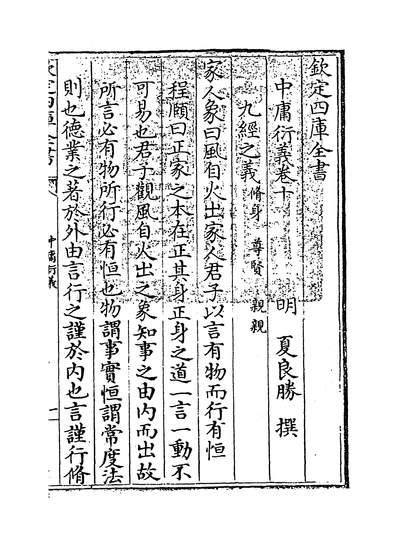 欽定四庫全書
中庸衍義卷十
明 夏良勝 撰
九經之義 脩身 尊賢 親親
家人象曰風自火出家人君子以言有物而行有恒
程頤曰正家之本在正其身正身之道一言一動不
可易也君子觀風自火出之象知事之由內而出故
所言必有物所行必有恒也物謂事實恒謂常度法
則也德業之著於外由言行之謹於內也言謹行脩
欽定四庫全書
中庸衍義
一